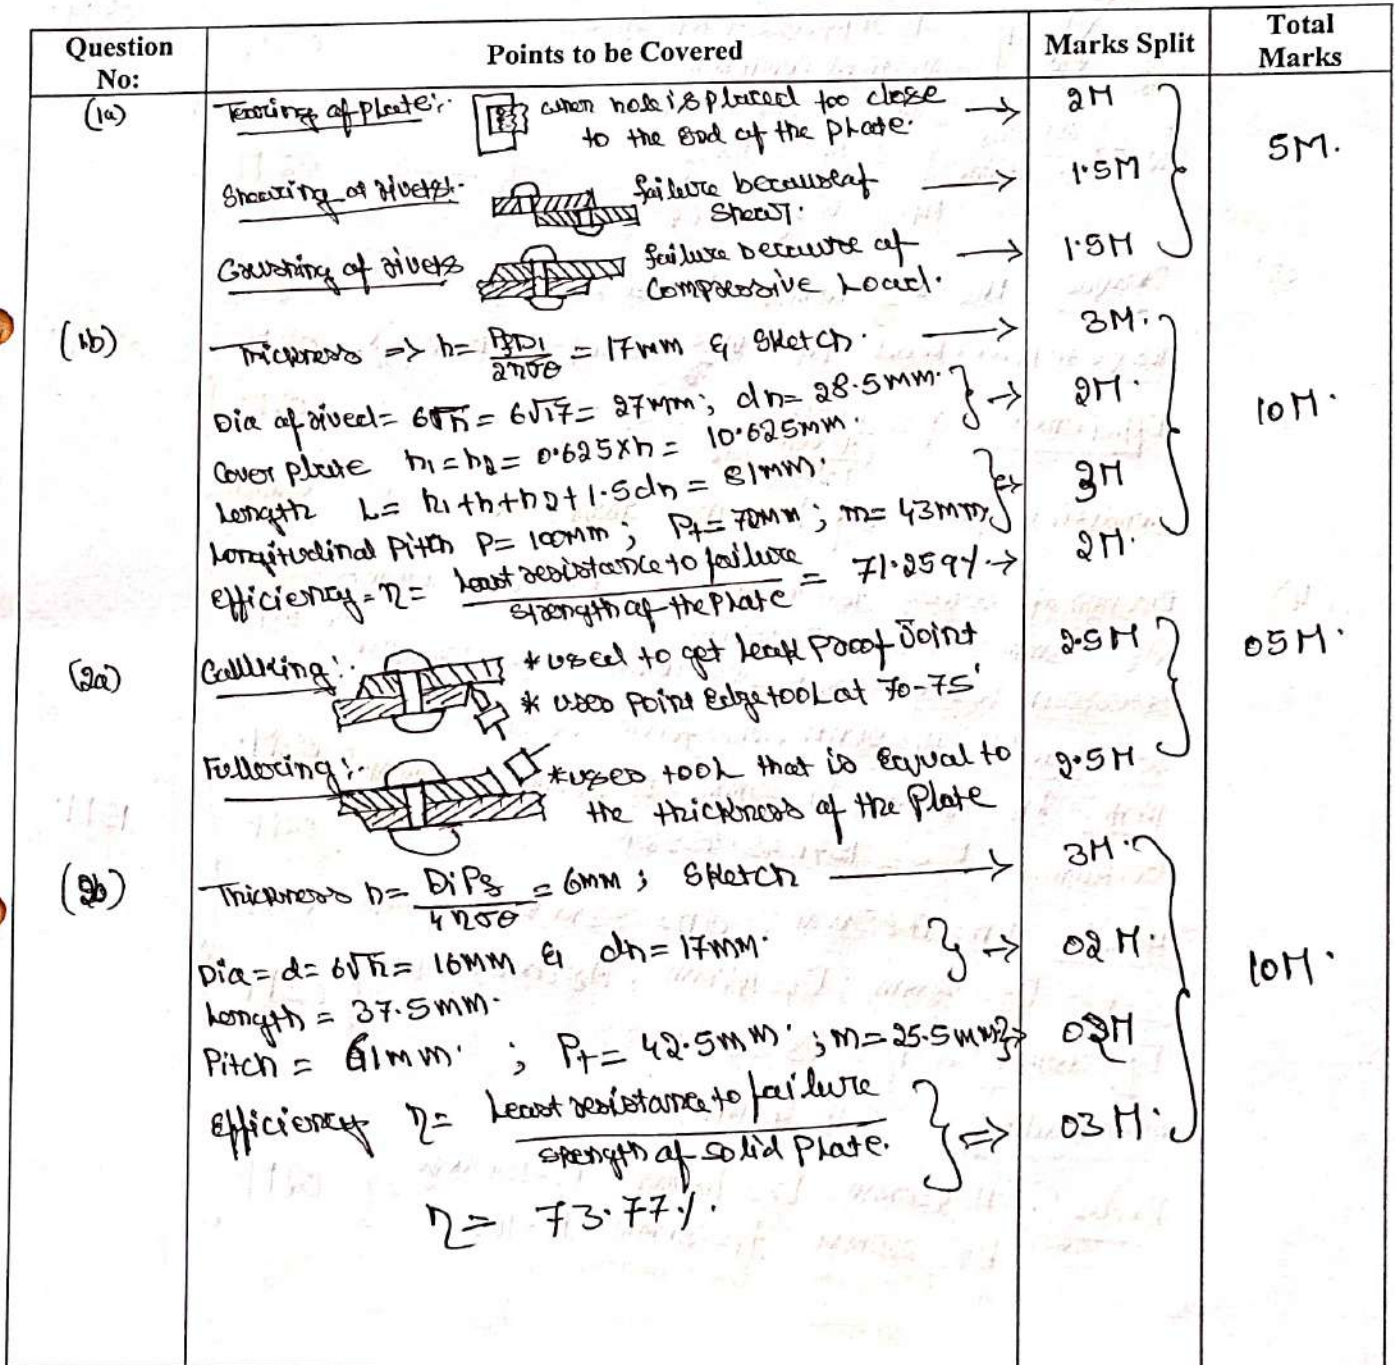 Question No:
Points to be Covered
Marks Split
Total Marks
(1a)
Tearing of plate:-
when hole is placed too close → 2M
to the end of the plate.
5M.
Shearing of rivets:-
failure because of → 1.5M
shear.
Crushing of rivets
failure because of → 1.5M
Compressive Load.
(1b)
Thickness => h = PfDi/2ησθ = 17mm & Sketch. → 3M.
Dia of rivet = 6√h = 6√17 = 27mm; dh = 28.5mm. } → 2M.
10M.
Cover plate h1 = h2 = 0.625xh = 10.625mm.
Length L = h1+h+h2+1.5dh = 81mm. } → 3M
Longitudinal Pitch P = 100mm; Pt = 70mm; m = 43mm
efficiency = η = Least resistance to failure / strength of the Plate = 71.259% → 2M.
(2a)
Caulking:-
*used to get leak Proof Joint 2.5M
05M.
* uses Point Edge tool at 70-75°
Fullering:-
*uses tool that is Equal to 2.5M
the thickness of the Plate
(2b)
Thickness h = DiPf/4ησθ = 6mm; Sketch → 3M.
Dia = d = 6√h = 16mm & dh = 17mm. } → 02M.
10M.
Length = 37.5mm.
Pitch = 61mm. ; Pt = 42.5mm. ; m = 25.5mm } → 02M
Efficiency η = Least resistance to failure / strength of solid Plate. } => 03M.
η = 73.77%.